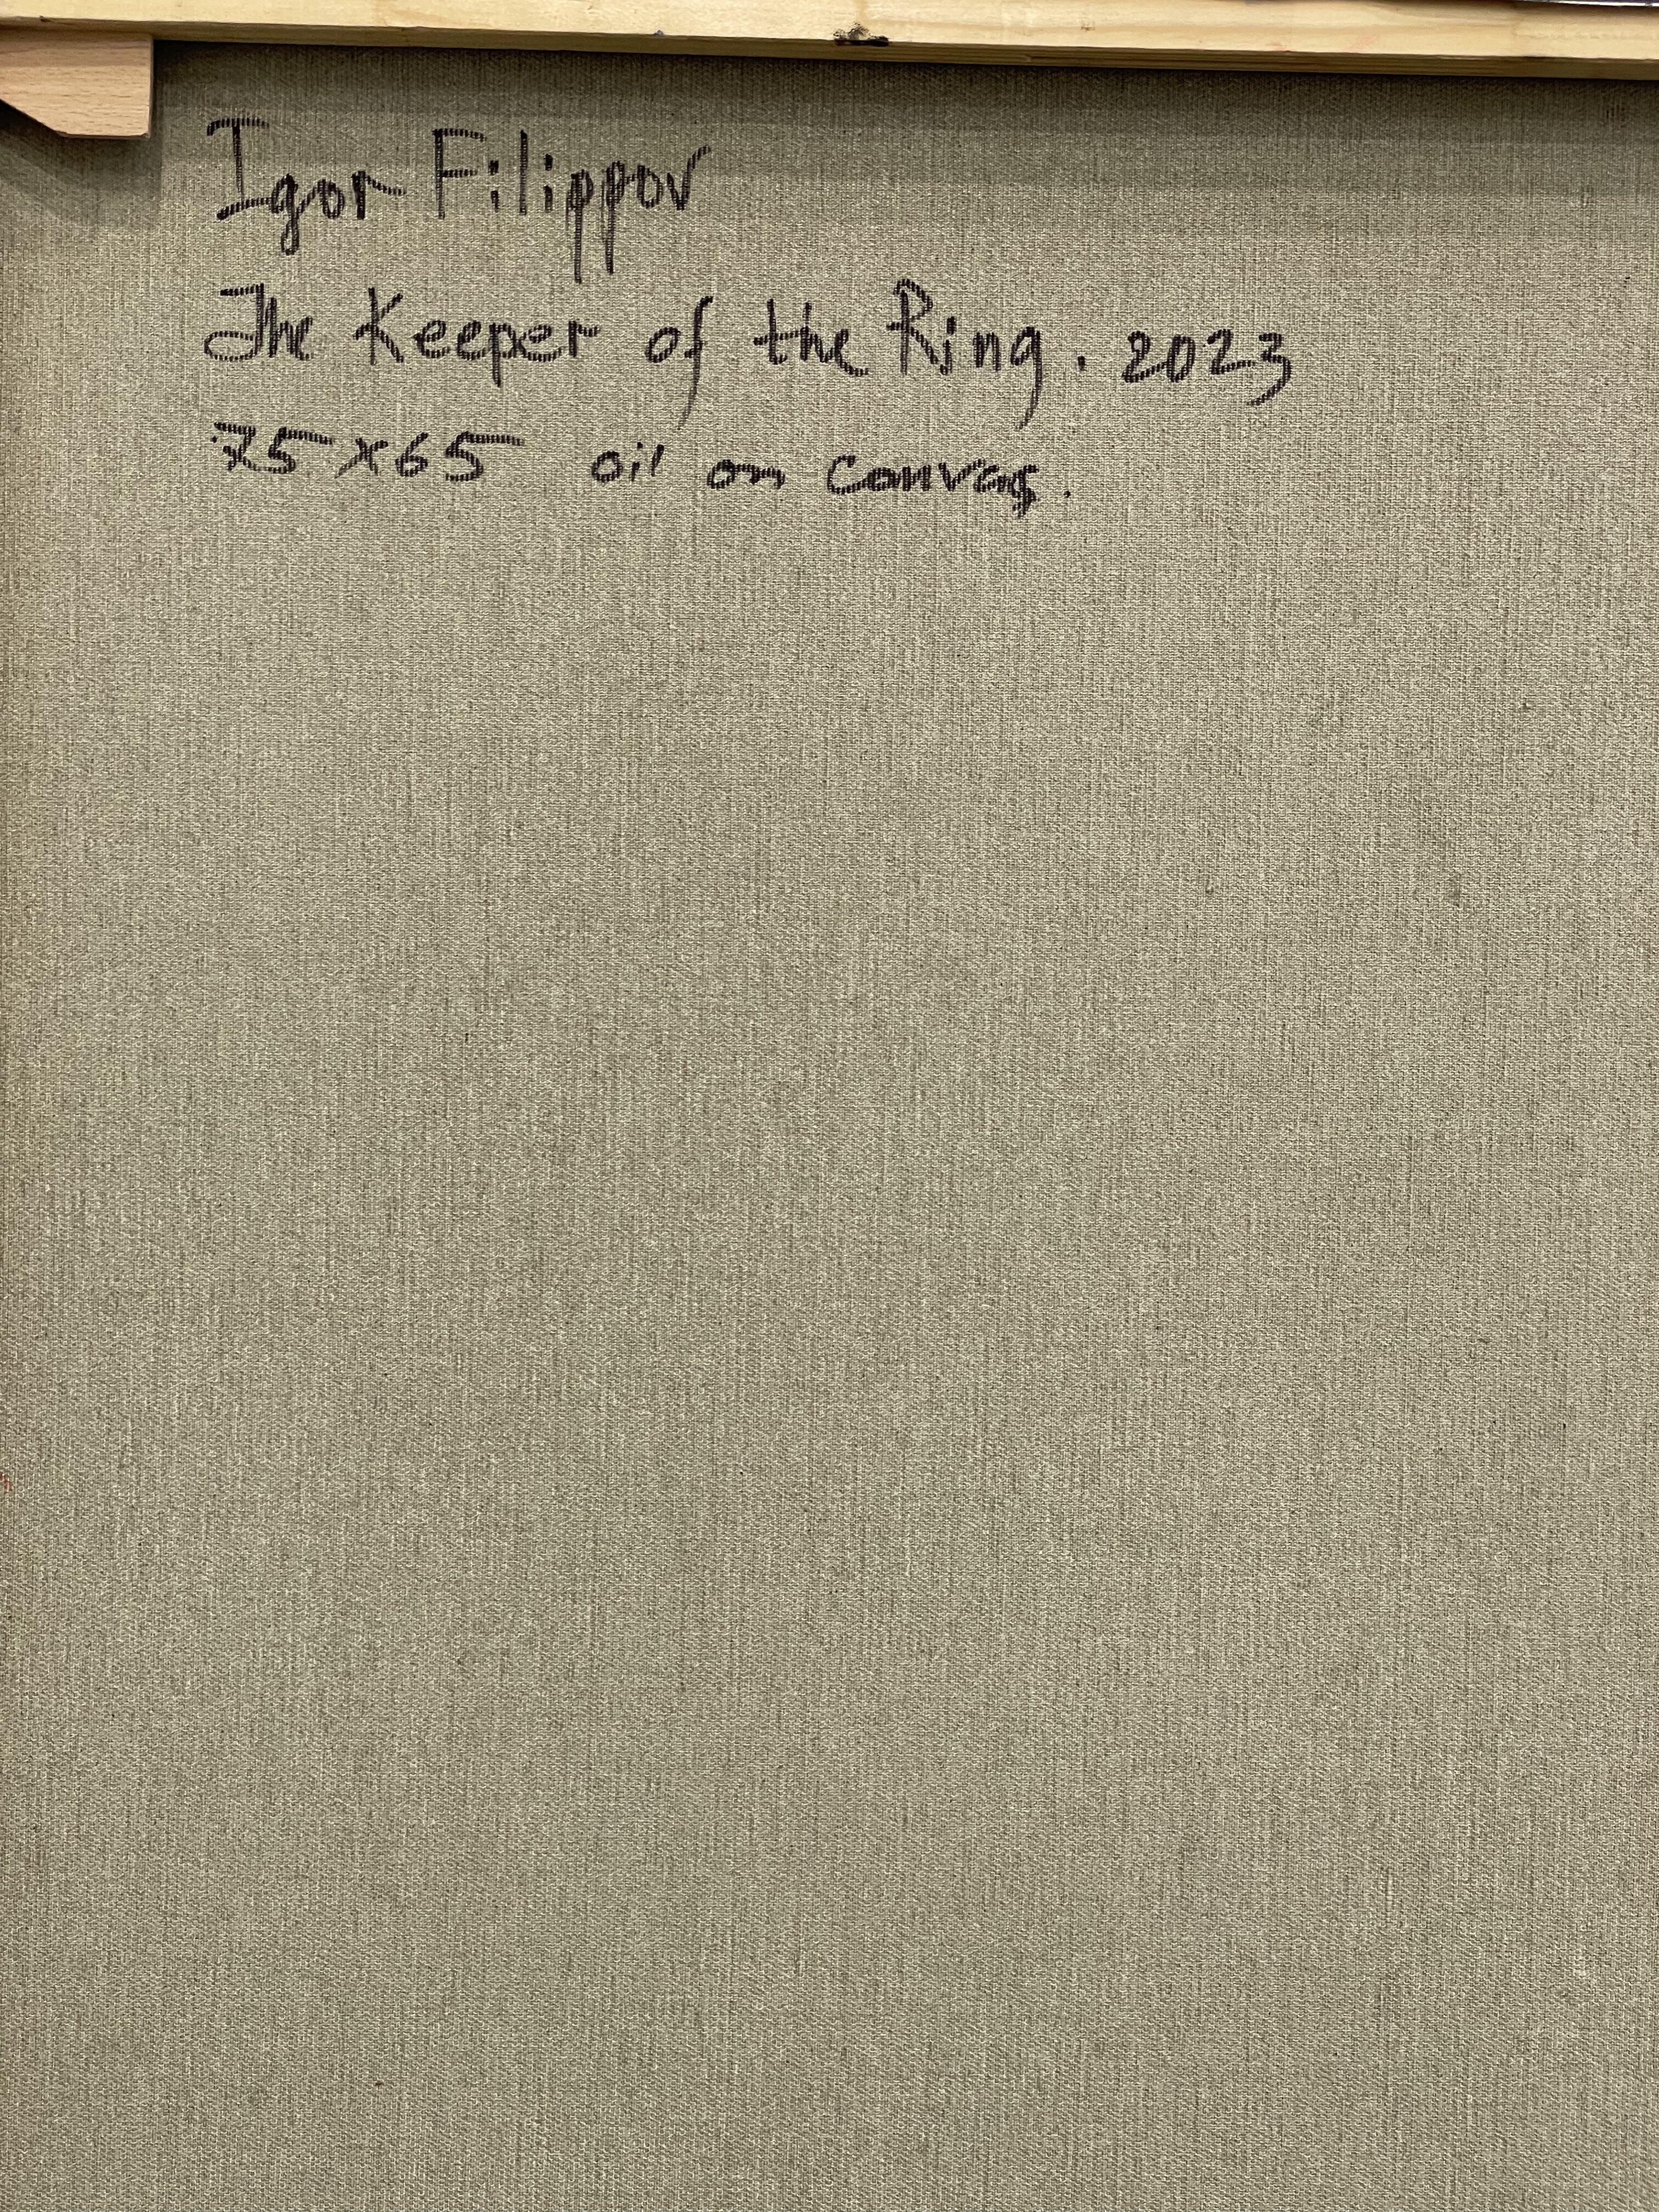 Igor Filippov
The Keeper of the Ring. 2023
75×65 oil on canvas.